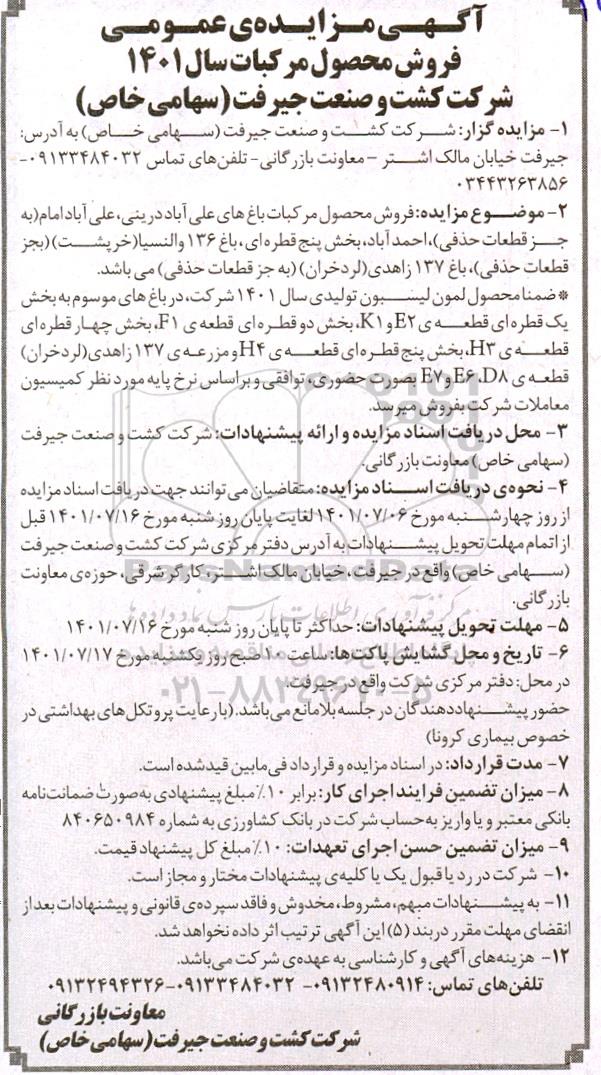 آگهی مزایده‌ی عمومی
فروش محصول مرکبات سال ۱۴۰۱
شرکت کشت و صنعت جیرفت (سهامی خاص)
۱- مزایده گزار: شرکت کشت و صنعت جیرفت (سهامی خاص) به آدرس:
جیرفت خیابان مالک اشتر – معاونت بازرگانی- تلفن‌های تماس ۰۹۱۳۳۴۸۴۰۳۲-
۰۳۴۴۳۲۶۳۸۵۶
۲- موضوع مزایده: فروش محصول مرکبات باغ های علی آباد درینی، علی آباد امام (به
جز قطعات حذفی)، احمدآباد، بخش پنج قطره‌ای، باغ ۱۳۶ والنسیا (خرپشت) (بجز
قطعات حذفی)، باغ ۱۳۷ زاهدی (لردخران) (به جز قطعات حذفی) می باشد.
* ضمنا محصول لمون لیسبون تولیدی سال ۱۴۰۱ شرکت، در باغ های موسوم به بخش
یک قطره‌ای قطعه ی E۲ و K۱، بخش دو قطره‌ای قطعه‌ی F۱، بخش چهار قطره‌ای
قطعه‌ی H۳، بخش پنج قطره‌ای قطعه‌ی H۴ و مزرعه‌ی ۱۳۷ زاهدی (لردخران)
قطعه‌ی E۶،D۸ و E۷ بصورت حضوری، توافقی و براساس نرخ پایه مورد نظر کمیسیون
معاملات شرکت بفروش میرسد.
۳- محل دریافت اسناد مزایده و ارائه پیشنهادات: شرکت کشت و صنعت جیرفت
(سهامی خاص) معاونت بازرگانی.
۴- نحوه‌ی دریافت اسناد مزایده: متقاضیان می توانند جهت دریافت اسناد مزایده
از روز چهارشنبه مورخ ۱۴۰۱/۰۷/۰۶ لغایت پایان روز شنبه مورخ ۱۴۰۱/۰۷/۱۶ قبل
از اتمام مهلت تحویل پیشنهادات به آدرس دفتر مرکزی شرکت کشت و صنعت جیرفت
(سهامی خاص) واقع در جیرفت، خیابان مالک اشتر، کارگر شرقی، حوزه‌ی معاونت
بازرگانی.
۵- مهلت تحویل پیشنهادات: حداکثر تا پایان روز شنبه مورخ ۱۴۰۱/۰۷/۱۶
۶- تاریخ و محل گشایش پاکت‌ها: ساعت ۱۰ صبح روز یکشنبه مورخ ۱۴۰۱/۰۷/۱۷
در محل: دفتر مرکزی شرکت واقع در جیرفت.
حضور پیشنهاددهندگان در جلسه بلامانع می‌باشد. (با رعایت پروتکل‌های بهداشتی در
خصوص بیماری کرونا)
۷- مدت قرارداد: در اسناد مزایده و قرارداد فی‌مابین قید شده است.
۸- میزان تضمین فرایند اجرای کار: برابر ۱۰٪ مبلغ پیشنهادی به‌صورت ضمانت‌نامه
بانکی معتبر و یا واریز به‌حساب شرکت در بانک کشاورزی به شماره ۸۴۰۶۵۰۹۸۴
۹- میزان تضمین حسن اجرای تعهدات: ۱۰٪ مبلغ کل پیشنهاد قیمت.
۱۰- شرکت در رد یا قبول یک یا کلیه‌ی پیشنهادات مختار و مجاز است.
۱۱- به پیشنهادات مبهم، مشروط، مخدوش و فاقد سپرده‌ی قانونی و پیشنهادات بعد از
انقضای مهلت مقرر در بند (۵) این آگهی ترتیب اثر داده نخواهد شد.
۱۲- هزینه‌های آگهی و کارشناسی به عهده‌ی شرکت می‌باشد.
تلفن‌های تماس: ۰۹۱۳۲۴۸۰۹۱۴- ۰۹۱۳۳۴۸۴۰۳۲-۰۹۱۳۲۴۹۴۳۲۶
معاونت بازرگانی
شرکت کشت و صنعت جیرفت (سهامی خاص)
ParsNamadData
۰۲۱-۸۸۳۴۹۶۷۰-۵